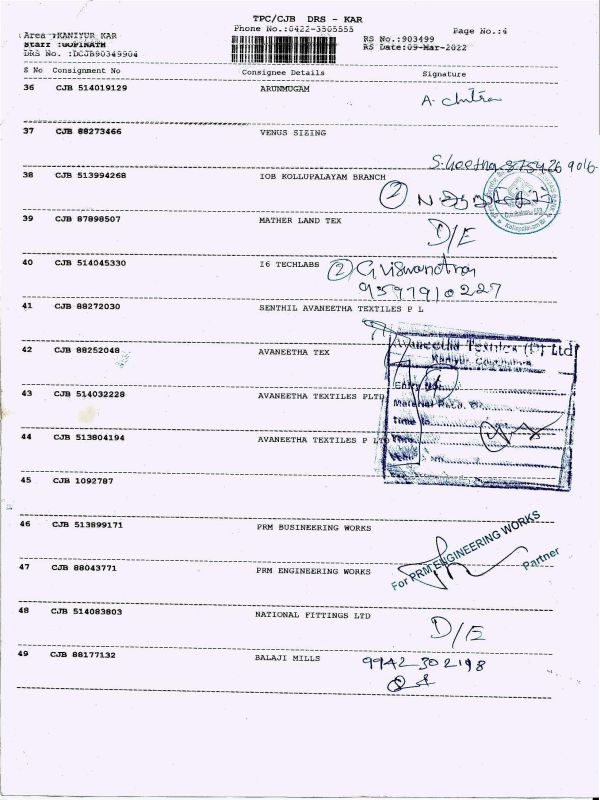 TPC/CJB DRS - KAR
Phone No.:0422-3505555
Page No.:4
Area :KANIYUR KAR
Staff :GOPINATH
DRS No. :DCJB90349904
RS No.:903499
RS Date:09-Mar-2022
S No Consignment No Consignee Details Signature
36 CJB 514019129 ARUNMUGAM A. Chitra
37 CJB 88273466 VENUS SIZING
S. Geetha
38 CJB 513994268 IOB KOLLUPALAYAM BRANCH
2
39 CJB 87898507 MATHER LAND TEX D/E
40 CJB 514045330 I6 TECHLABS 2
41 CJB 88272030 SENTHIL AVANEETHA TEXTILES P L
Avaneetha Textiles (P) Ltd
42 CJB 88252048 AVANEETHA TEX
43 CJB 514032228 AVANEETHA TEXTILES PLTD
44 CJB 513804194 AVANEETHA TEXTILES P LTD
45 CJB 1092787
46 CJB 513899171 PRM BUSINEERING WORKS
For PRM ENGINEERING WORKS
Partner
47 CJB 88043771 PRM ENGINEERING WORKS
48 CJB 514083803 NATIONAL FITTINGS LTD D/E
49 CJB 88177132 BALAJI MILLS 9942302198